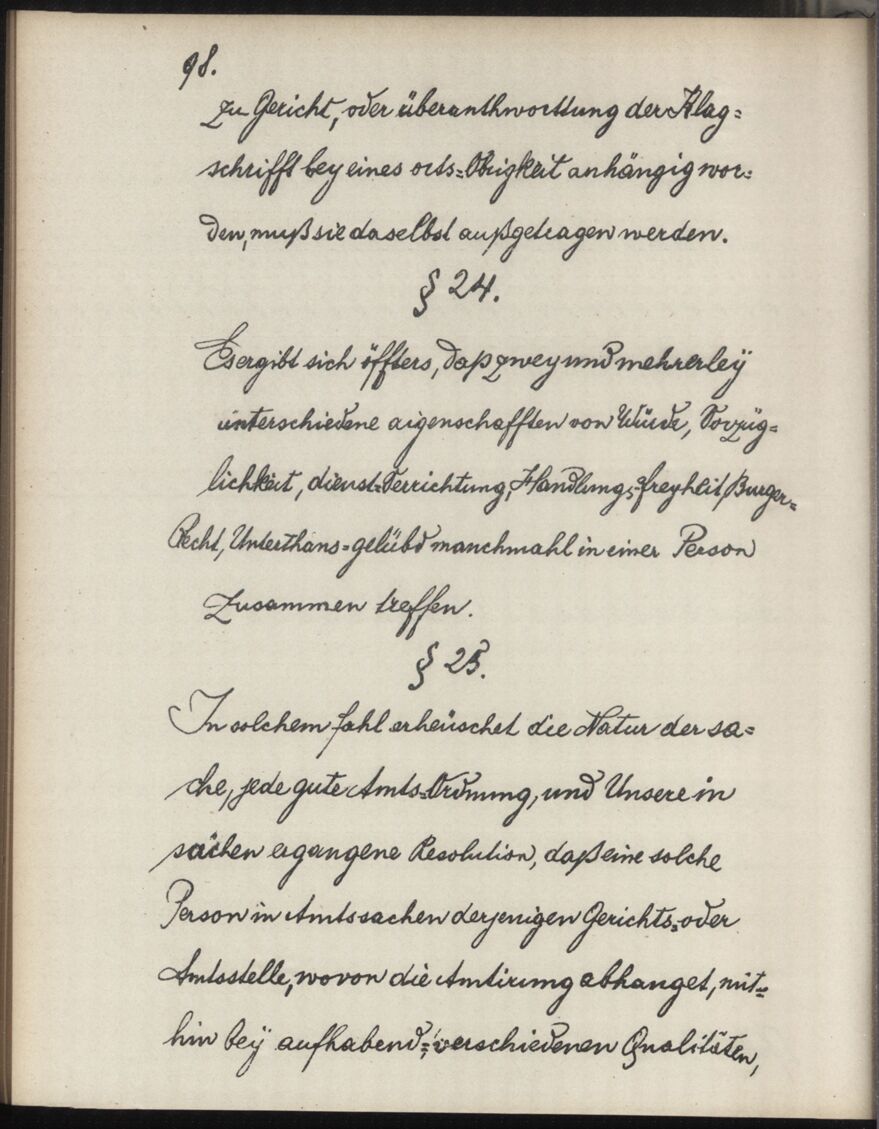 98.
zu Gericht, oder überanthworttung der Klag=
schrifft bey eines orts=Obrigkeit anhängig wor=
den, muß sie daselbst außgetragen werden.
§ 24.
Es ergibt sich öffters, daß zwey und mehrerley
unterschiedene aigenschafften von Würde, Vorzüg=
lichkeit, dienst=Verrichtung, Handlungs=freyheit, Burger=
Recht, Unterthans=gelübd manchmahl in einer Person
Zusammen treffen.
§ 25.
In solchem fahl erheüschet die Natur der sa=
che, jede gute Amts=Ordnung, und Unsere in
sachen ergangene Resolution, daß eine solche
Person in Amtssachen derjenigen Gerichts=oder
Amtsstelle, wovon die Amtirung abhanget, mit=
hin beÿ aufhabend=verschiedenen Qualitäten,